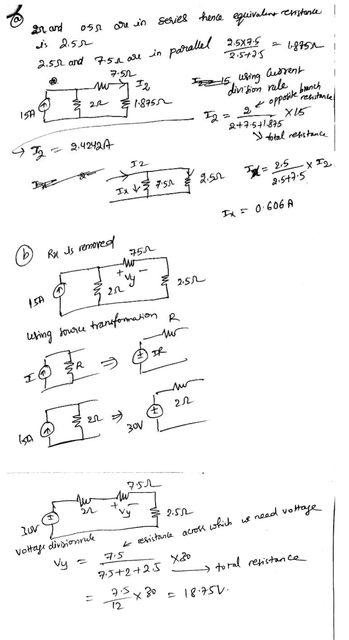 a
2Ω and 0.5Ω are in series hence equivalent resistance
is 2.5Ω
2.5Ω and 7.5Ω are in parallel 2.5×7.5 / 2.5+7.5 = 1.875Ω
7.5Ω
I2
15A
2Ω
1.875Ω
using current
division rule
I2 = 2 / 2+7.5+1.875 × 15
opposite branch
resistance
total resistance
→ I2 = 2.4242A
I2
Ix
7.5Ω
2.5Ω
Ix = 2.5 / 2.5+7.5 × I2
Ix = 0.606A
b Rx is removed
75Ω
+ Vy −
15A
2Ω
2.5Ω
using source transformation
I
R
⇒
IR
R
15A
2Ω
⇒
30V
2Ω
7.5Ω
2Ω
+ Vy −
30V
2.5Ω
voltage division rule
resistance across which we need voltage
Vy = 7.5 / 7.5+2+2.5 ×30
→ total resistance
= 7.5 / 12 × 30 = 18.75V.